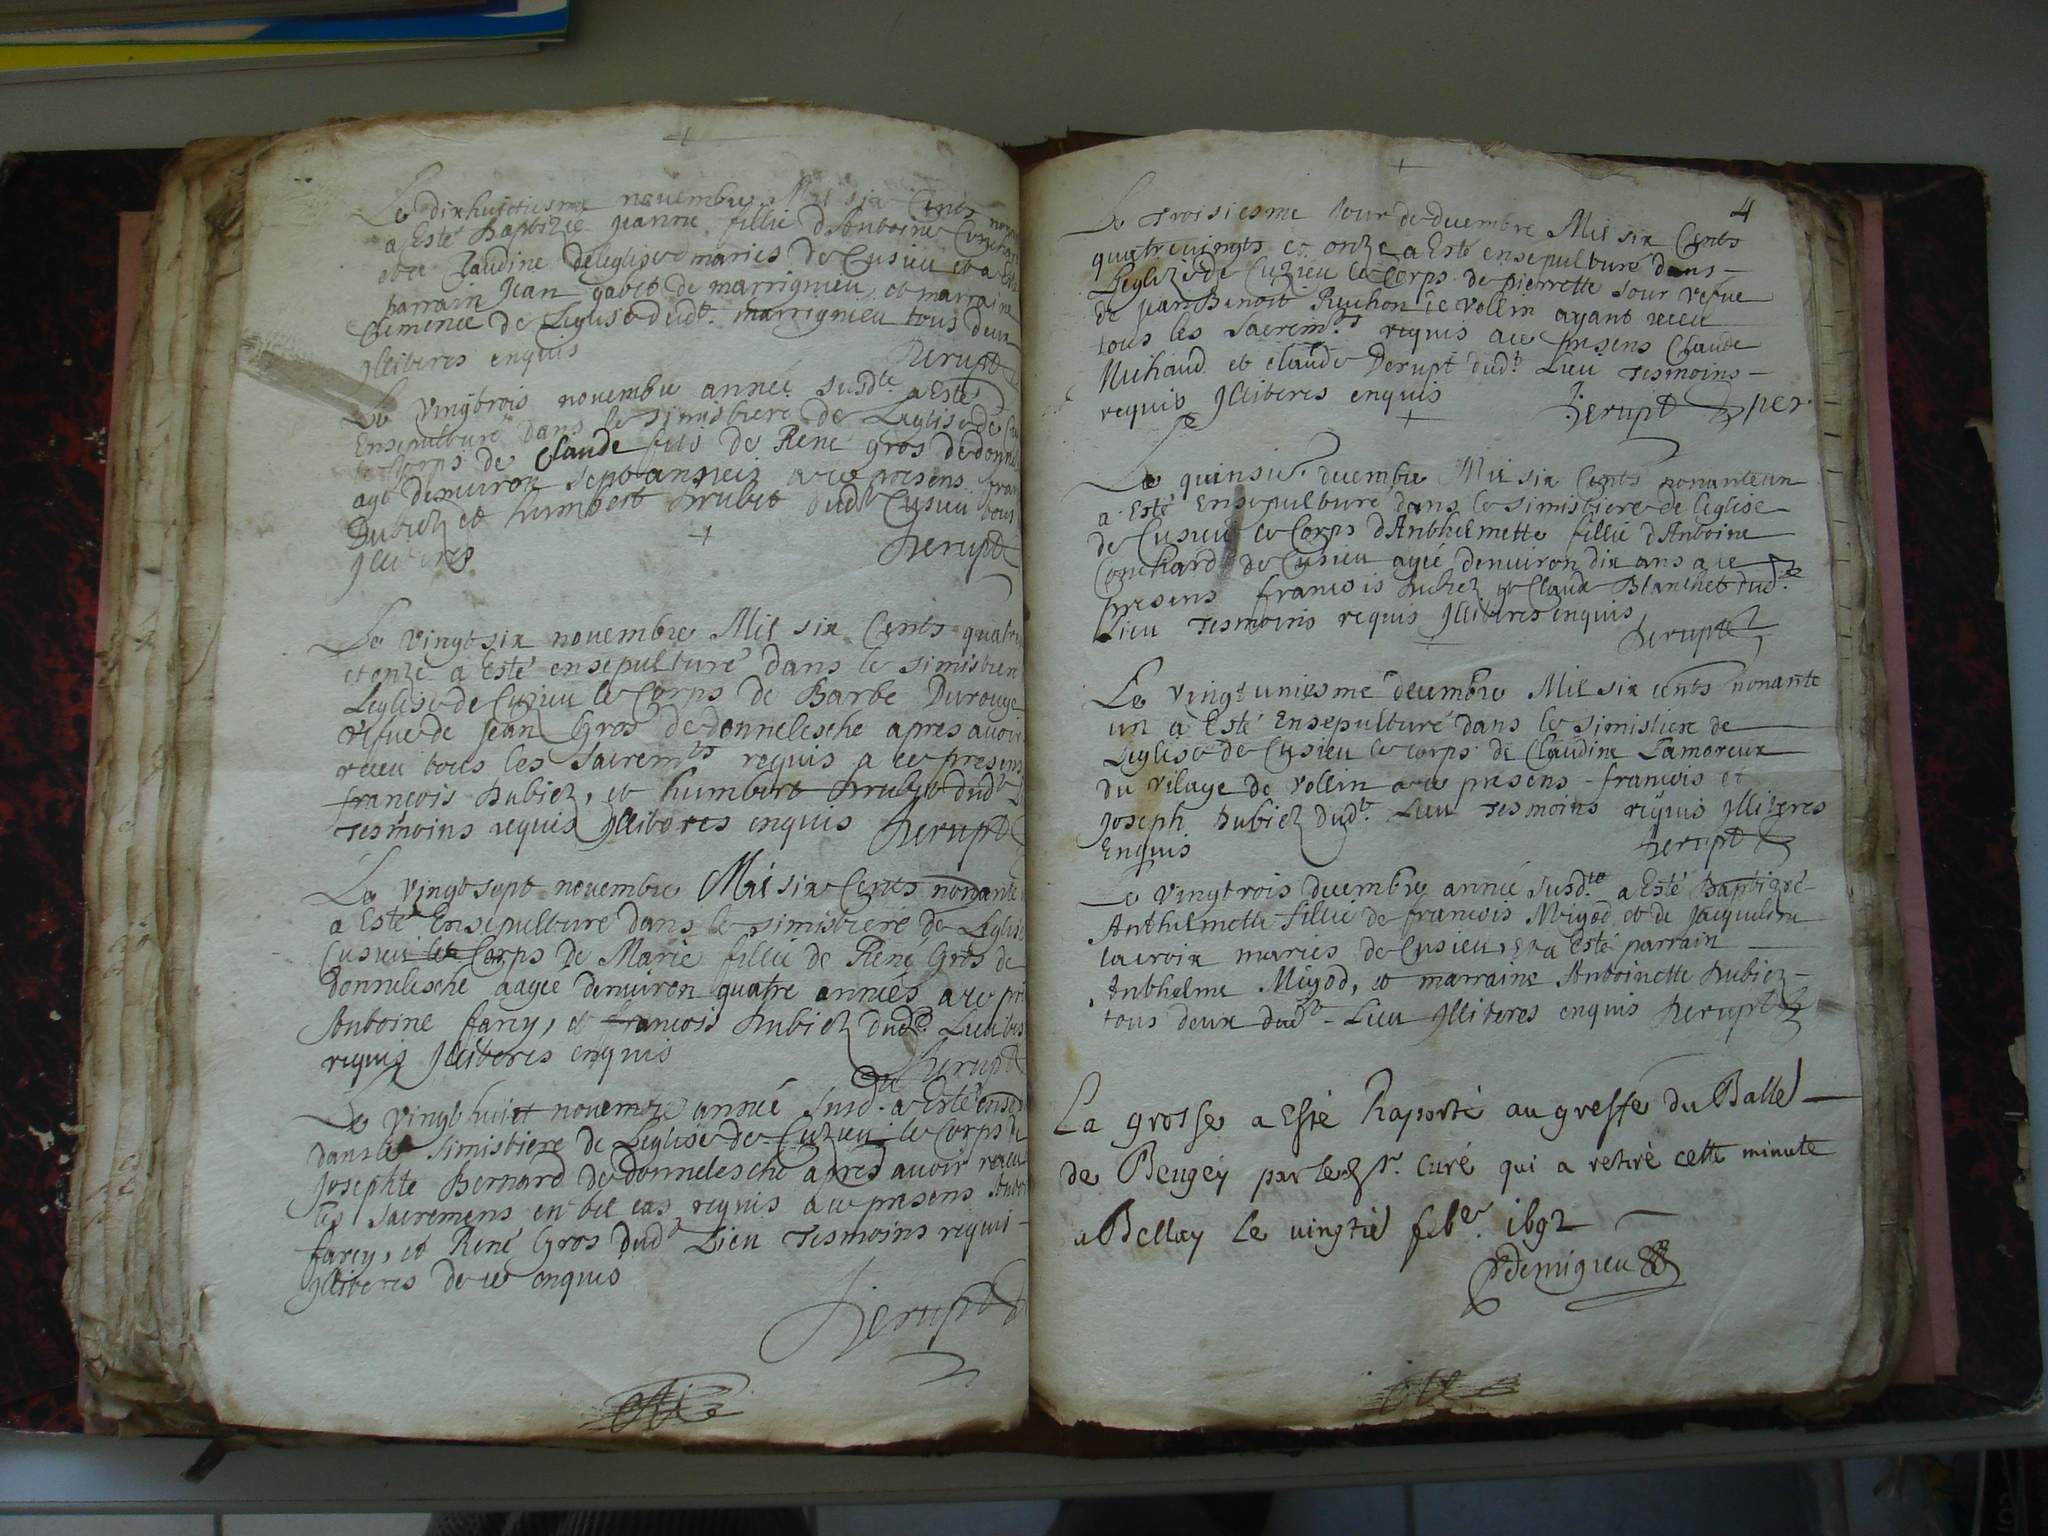 Le dixhuictiesme novembre Mil six Cents
a Esté Baptizée Jeanne fillie d'Anthoine
et de Claudine deleglise mariés de Cusieu et a Esté
parrain Jean gavet de marrignieu et marraine
Clemence de Leglise dudt. marrignieu tous deux
Jlliteres enquis
Derupt
Le vingtrois novembre année susdte a Esté
Ensepulturé dans le simistiere de Leglise de
le Corps de Claude fils de René gros de donne
agé denuiron sept années a ce presens
Dubiez et humbert dudt Cusieu tous
Jlliteres
Derupt
Le vingt six novembre Mil six Cents quatre
et onze a Esté ensepulturé dans le simistiere
Leglise de Cuzieu le Corps de Barbe Durouge
vefue de Jean Gros de donnelesche apres avoir
receu tous les sacremts requis a ce presens
françois Dubiez, et humbert dudt
tesmoins requis Jlliteres enquis Derupt
Le vingt sept novembre Mil six Cents nonante
a Esté Ensepulturé dans le simistiere de Leglise
Cusieu le Corps de Marie fillie de René Gros de
donnelesche aagée denuiron quatre années a ce pre
Antoine farcy, et francois Dubiez dudt. Lieu
requis Jlliteres enquis
Derupt
Le vingt huict novembre année susdt a Esté
dans le simistiere de Leglise de Cuzieu le Corps de
Josephte Bernard de donnelesche apres avoir receu
les sacremens en tel cas requis a ce presens
farcy, et René Gros dudt Lieu tesmoins requi
Jlliteres de ce enquis
Derupt
4
Le troisiesme Jour de decembre Mil six Cents
quatrevingts et onze a Esté ensepulturé dans
Leglize de Cuzieu le Corps de pierrette Jour vefue
de Jean Benoit Ruchon de vollin ayant receu
tous les sacremts requis a ce presens Claude
Michaud et claude Derupt dudt Lieu tesmoins
requis Jlliteres enquis
Derupt
Le quinsie. decembre Mil six Cents nonante un
a Esté Ensepulturé dans le simistiere de leglise
de Cusieu le Corps d'Anthelmette fillie d'Antoine
Couchard de Cusieu agée denuiron dix ans a ce
presens francois Dubiez et Claude Blanchet dudt
Lieu tesmoins requis Jlliteres enquis
Derupt
Le vingt uniesme decembre Mil six cents nonante
un a Esté Ensepulturé dans le simistiere de
Leglise de Cusieu le corps de Claudine Lamoreux
du vilage de vollin a ce presens francois et
Joseph Dubiez dudt. Lieu tesmoins requis Jlliteres
Enquis
Derupt
Le vingtrois decembre année susdte a Esté Baptizé
Anthelmette fillie de francois Migod et de Jacqueline
lacroix mariés de Cusieu, et a Esté parrain
Anthelme Migod, et marraine Antoinette Dubiez
tous deux dudt Lieu Jlliteres enquis Derupt
La grosse a Esté Raporté au greffe du Balle
de Beugey par led Sr. Curé qui a retiré cette minute
a Belley le vingtié feber. 1692
Demigieu